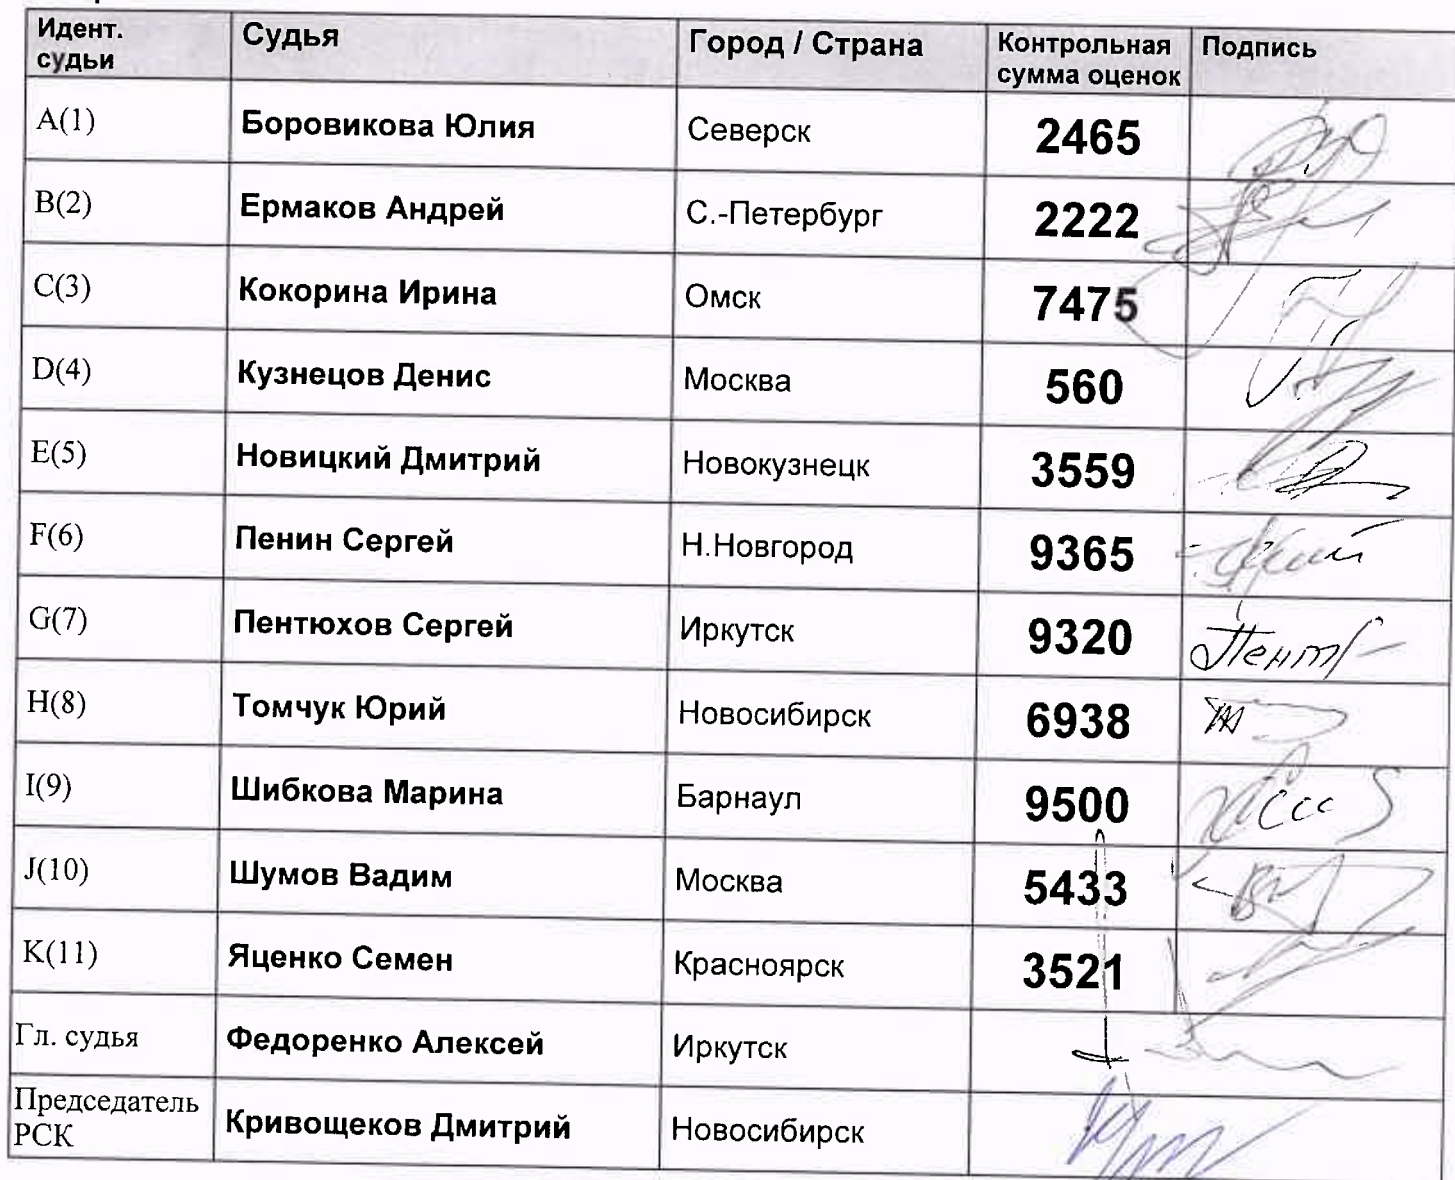 Идент. судьи Судья Город / Страна Контрольная сумма оценок Подпись
A(1) Боровикова Юлия Северск 2465
B(2) Ермаков Андрей С.-Петербург 2222
C(3) Кокорина Ирина Омск 7475
D(4) Кузнецов Денис Москва 560
E(5) Новицкий Дмитрий Новокузнецк 3559
F(6) Пенин Сергей Н.Новгород 9365
G(7) Пентюхов Сергей Иркутск 9320
H(8) Томчук Юрий Новосибирск 6938
I(9) Шибкова Марина Барнаул 9500
J(10) Шумов Вадим Москва 5433
K(11) Яценко Семен Красноярск 3521
Гл. судья Федоренко Алексей Иркутск
Председатель РСК Кривощеков Дмитрий Новосибирск